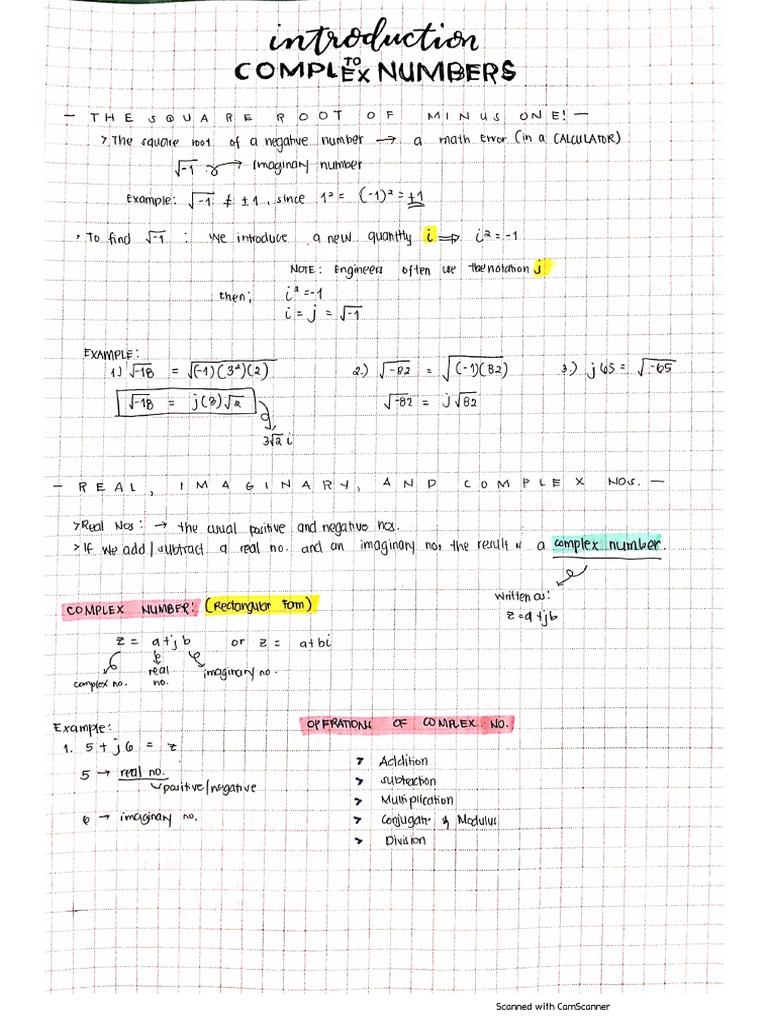 introduction
TO
COMPLEX NUMBERS
- THE SQUARE ROOT OF MINUS ONE! -
> The square root of a negative number → a math error (in a CALCULATOR)
√-1 → Imaginary number
Example: √-1 ≠ ±1, since 1² = (-1)² = +1
> To find √-1 : We introduce a new quantity i ⇒ i² = -1
NOTE: Engineers often use the notation j
then; i² = -1
i = j = √-1
EXAMPLE:
1.) √-18 = √(-1)(3²)(2) 2.) √-82 = √(-1)(82) 3.) j65 = √-65
√-18 = j(3)√2 √-82 = j√82
3√2 i
- REAL, IMAGINARY, AND COMPLEX NOS. -
> Real Nos: → the usual positive and negative nos.
> If we add/subtract a real no. and an imaginary no, the result is a complex number.
Written as:
z = a + jb
COMPLEX NUMBER: (Rectangular Form)
z = a + j b or z = a + bi
complex no. real no. imaginary no.
Example:
1. 5 + j6 = z
5 → real no.
positive/negative
6 → imaginary no.
OPERATIONS OF COMPLEX NO.
> Addition
> Subtraction
> Multiplication
> Conjugate & Modulus
> Division
Scanned with CamScanner